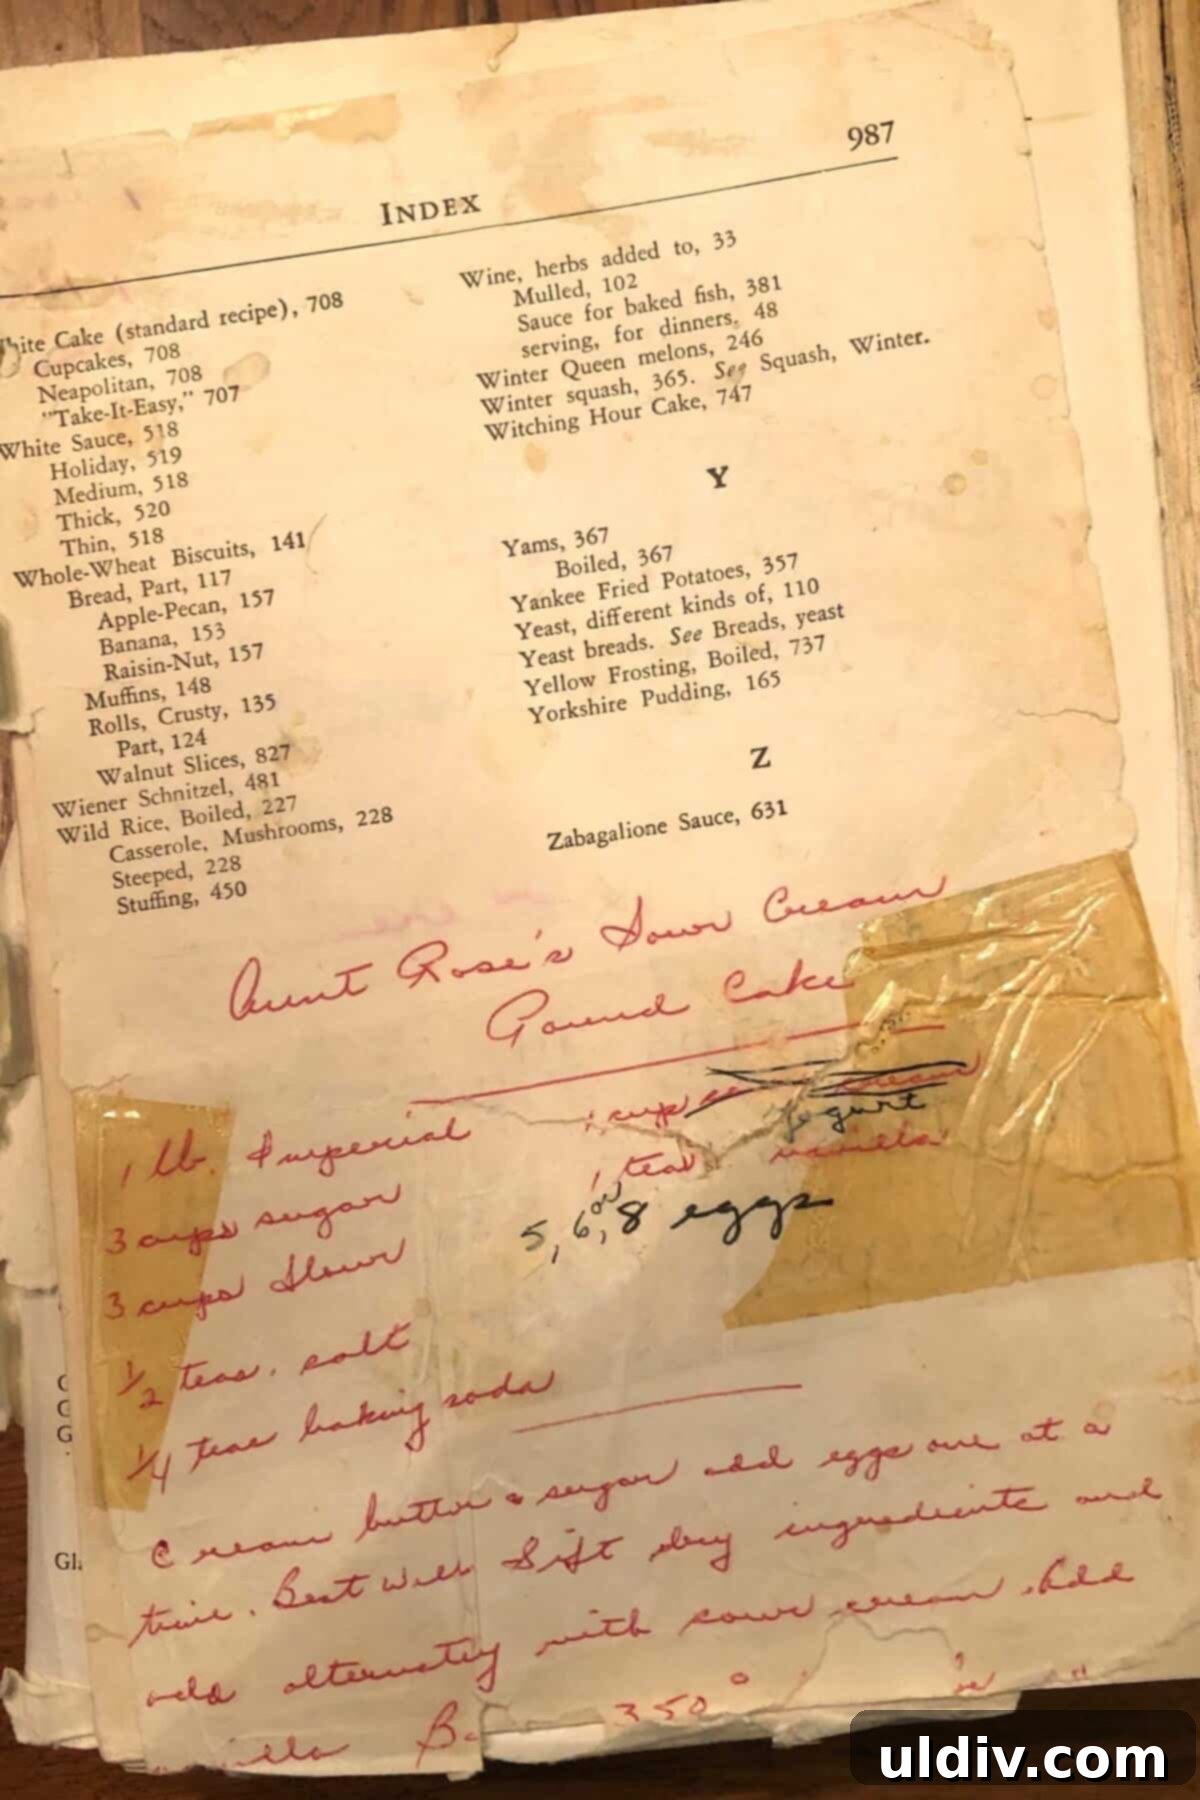 987
INDEX
hite Cake (standard recipe), 708
Cupcakes, 708
Neapolitan, 708
"Take-It-Easy," 707
White Sauce, 518
Holiday, 519
Medium, 518
Thick, 520
Thin, 518
Whole-Wheat Biscuits, 141
Bread, Part, 117
Apple-Pecan, 157
Banana, 153
Raisin-Nut, 157
Muffins, 148
Rolls, Crusty, 135
Part, 124
Walnut Slices, 827
Wiener Schnitzel, 481
Wild Rice, Boiled, 227
Casserole, Mushrooms, 228
Steeped, 228
Stuffing, 450
Wine, herbs added to, 33
Mulled, 102
Sauce for baked fish, 381
serving, for dinners, 48
Winter Queen melons, 246
Winter squash, 365. See Squash, Winter.
Witching Hour Cake, 747
Y
Yams, 367
Boiled, 367
Yankee Fried Potatoes, 357
Yeast, different kinds of, 110
Yeast breads. See Breads, yeast
Yellow Frosting, Boiled, 737
Yorkshire Pudding, 165
Z
Zabagalione Sauce, 631
Aunt Rose's Sour Cream
Pound Cake
1 lb. Imperial
3 cups sugar
3 cups flour
1/2 teas. salt
1/4 teas baking soda
1 cup cream
Yogurt
1 teas vanilla
5, 6, or 8 eggs
Cream butter & sugar add eggs one at a
time. Beat well Sift dry ingredients and
add alternately with sour cream. Add
350°
Gl
uldiv.com